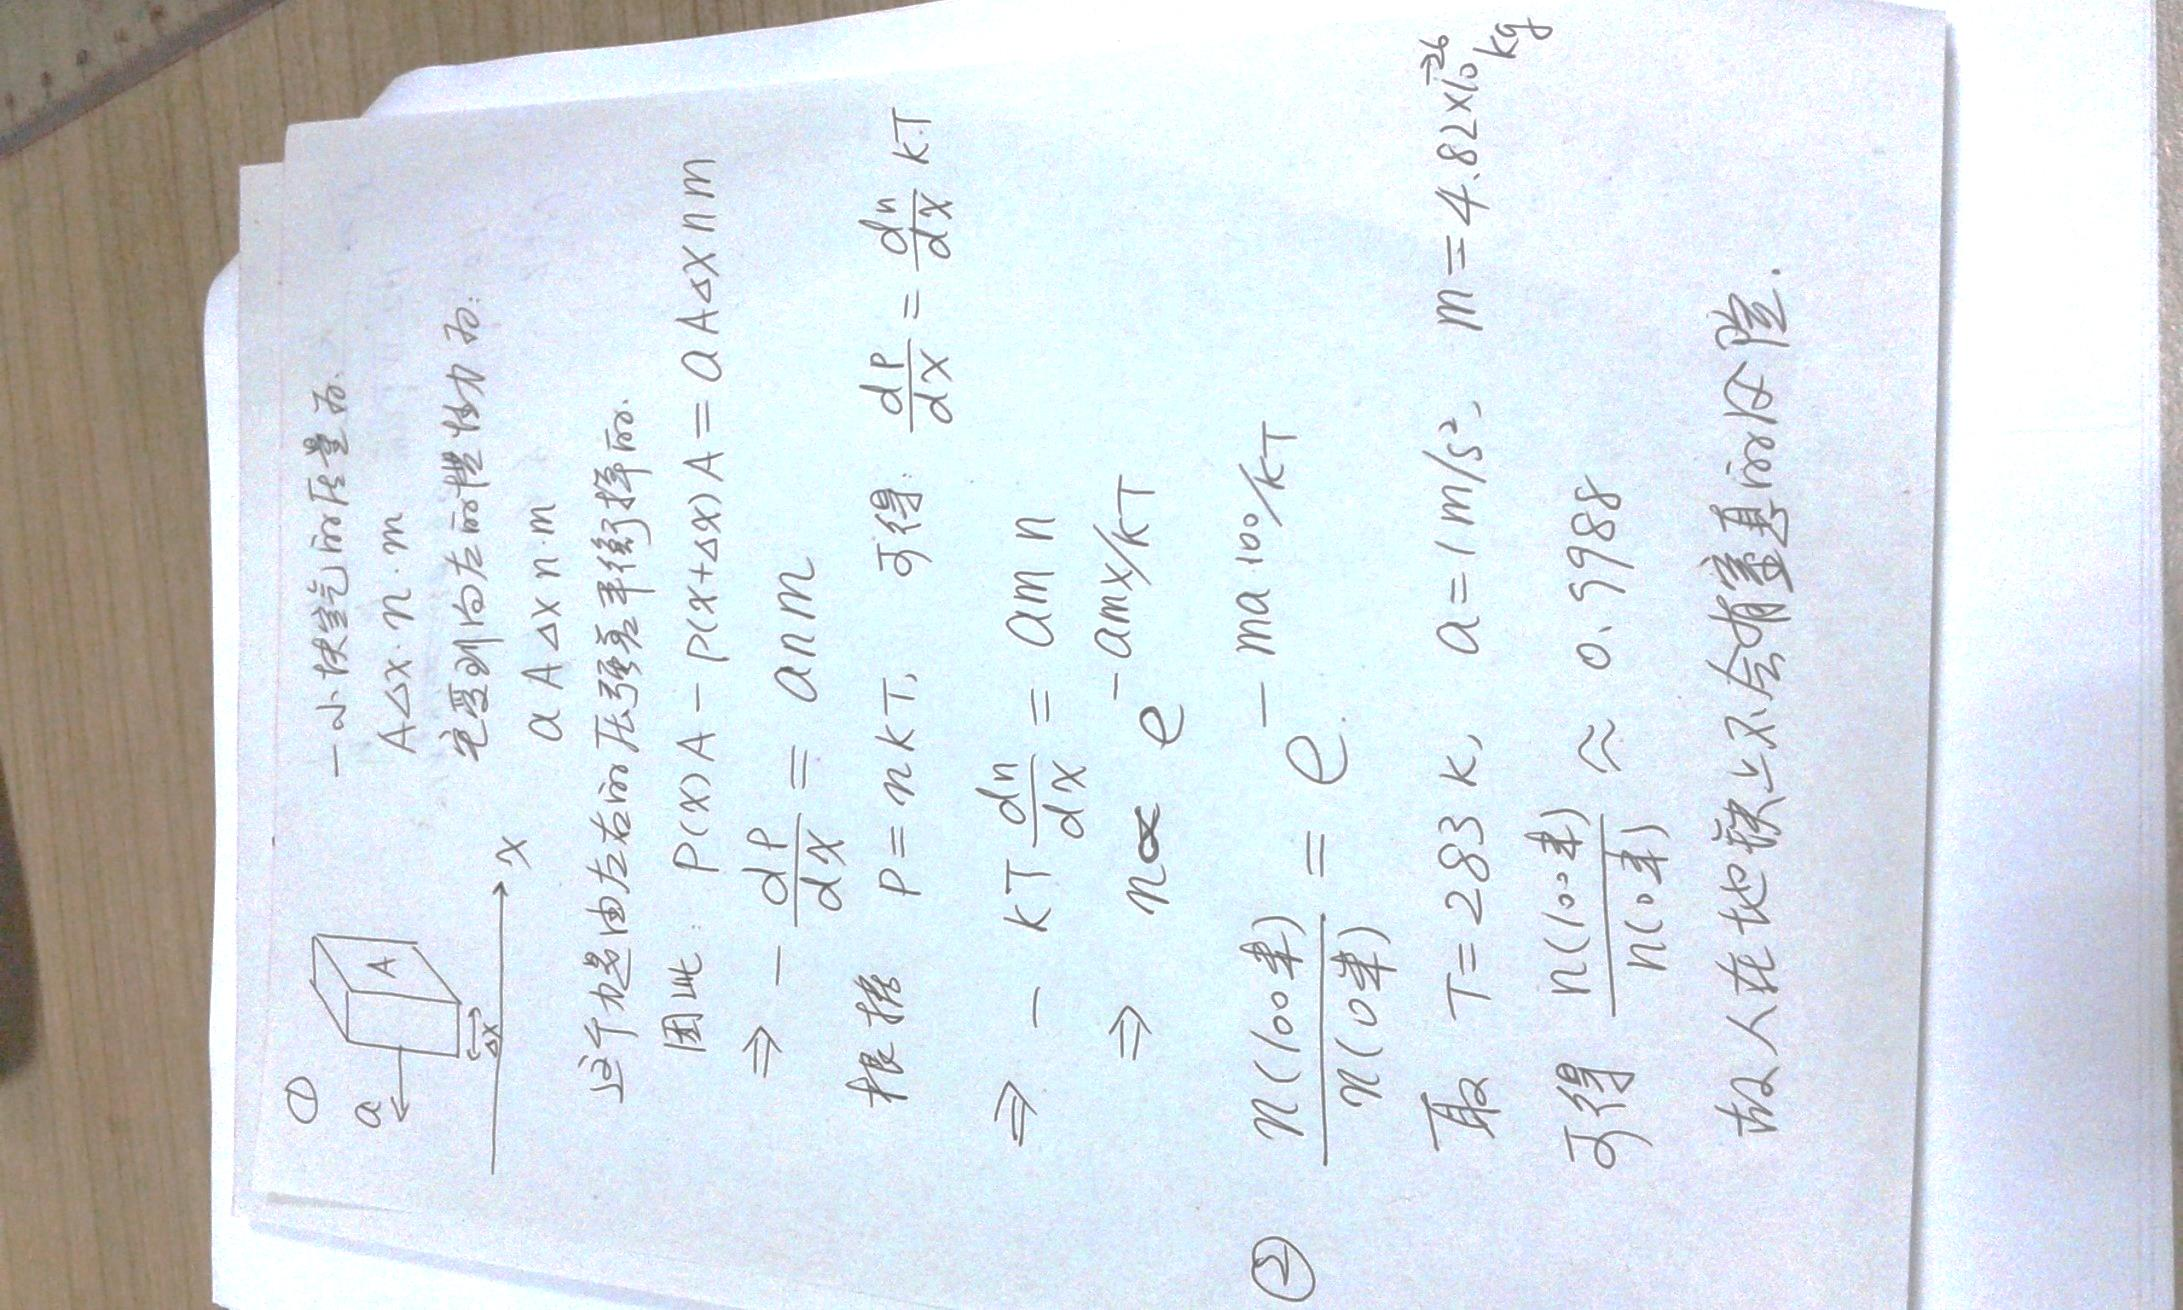 ①
a
A
Δx
x
一小块空气的质量为.
AΔx·n·m
它受到向左的惯性力为:
a A Δx n·m
这个力是由左右的压强差平衡掉的.
因此: P(x)A - P(x+Δx)A = a A Δx n m
⇒ - dP/dx = a n m
根据 P = nkT, 可得: dP/dx = dn/dx kT
⇒ - kT dn/dx = a m n
⇒ n ∝ e^{-amx/kT}
② n(100米)/n(0米) = e^{-ma·100/kT}
取 T = 283 K, a = 1 m/s², m = 4.82×10^{-26} kg
可得 n(100米)/n(0米) ≈ 0.9988
故人在地铁上不会有窒息的风险.